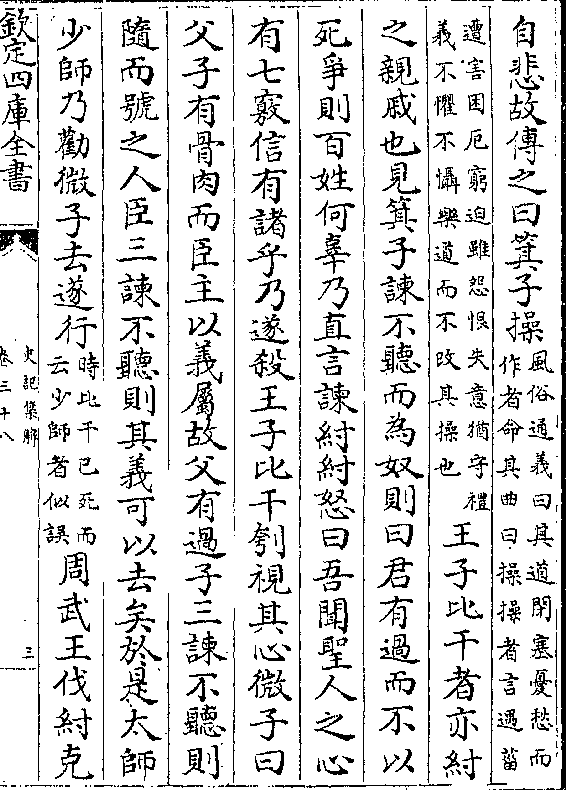 自悲故傳之曰箕子操風俗通義曰其道閉塞憂愁而
作者命其曲曰操操者言遇菑
遭害困厄窮迫雖怨恨失意猶守禮
義不懼不懾樂道而不改其操也王子比干者亦紂
之親戚也見箕子諫不聽而為奴則曰君有過而不以
死爭則百姓何辜乃直言諫紂紂怒曰吾聞聖人之心
有七竅信有諸乎乃遂殺王子比干刳視其心微子曰
父子有骨肉而臣主以義屬故父有過子三諫不聽則
隨而號之人臣三諫不聽則其義可以去矣於是太師
少師乃勸微子去遂行時比干已死而
云少師者似誤周武王伐紂克
欽定四庫全書
史記集解
卷三十八
三